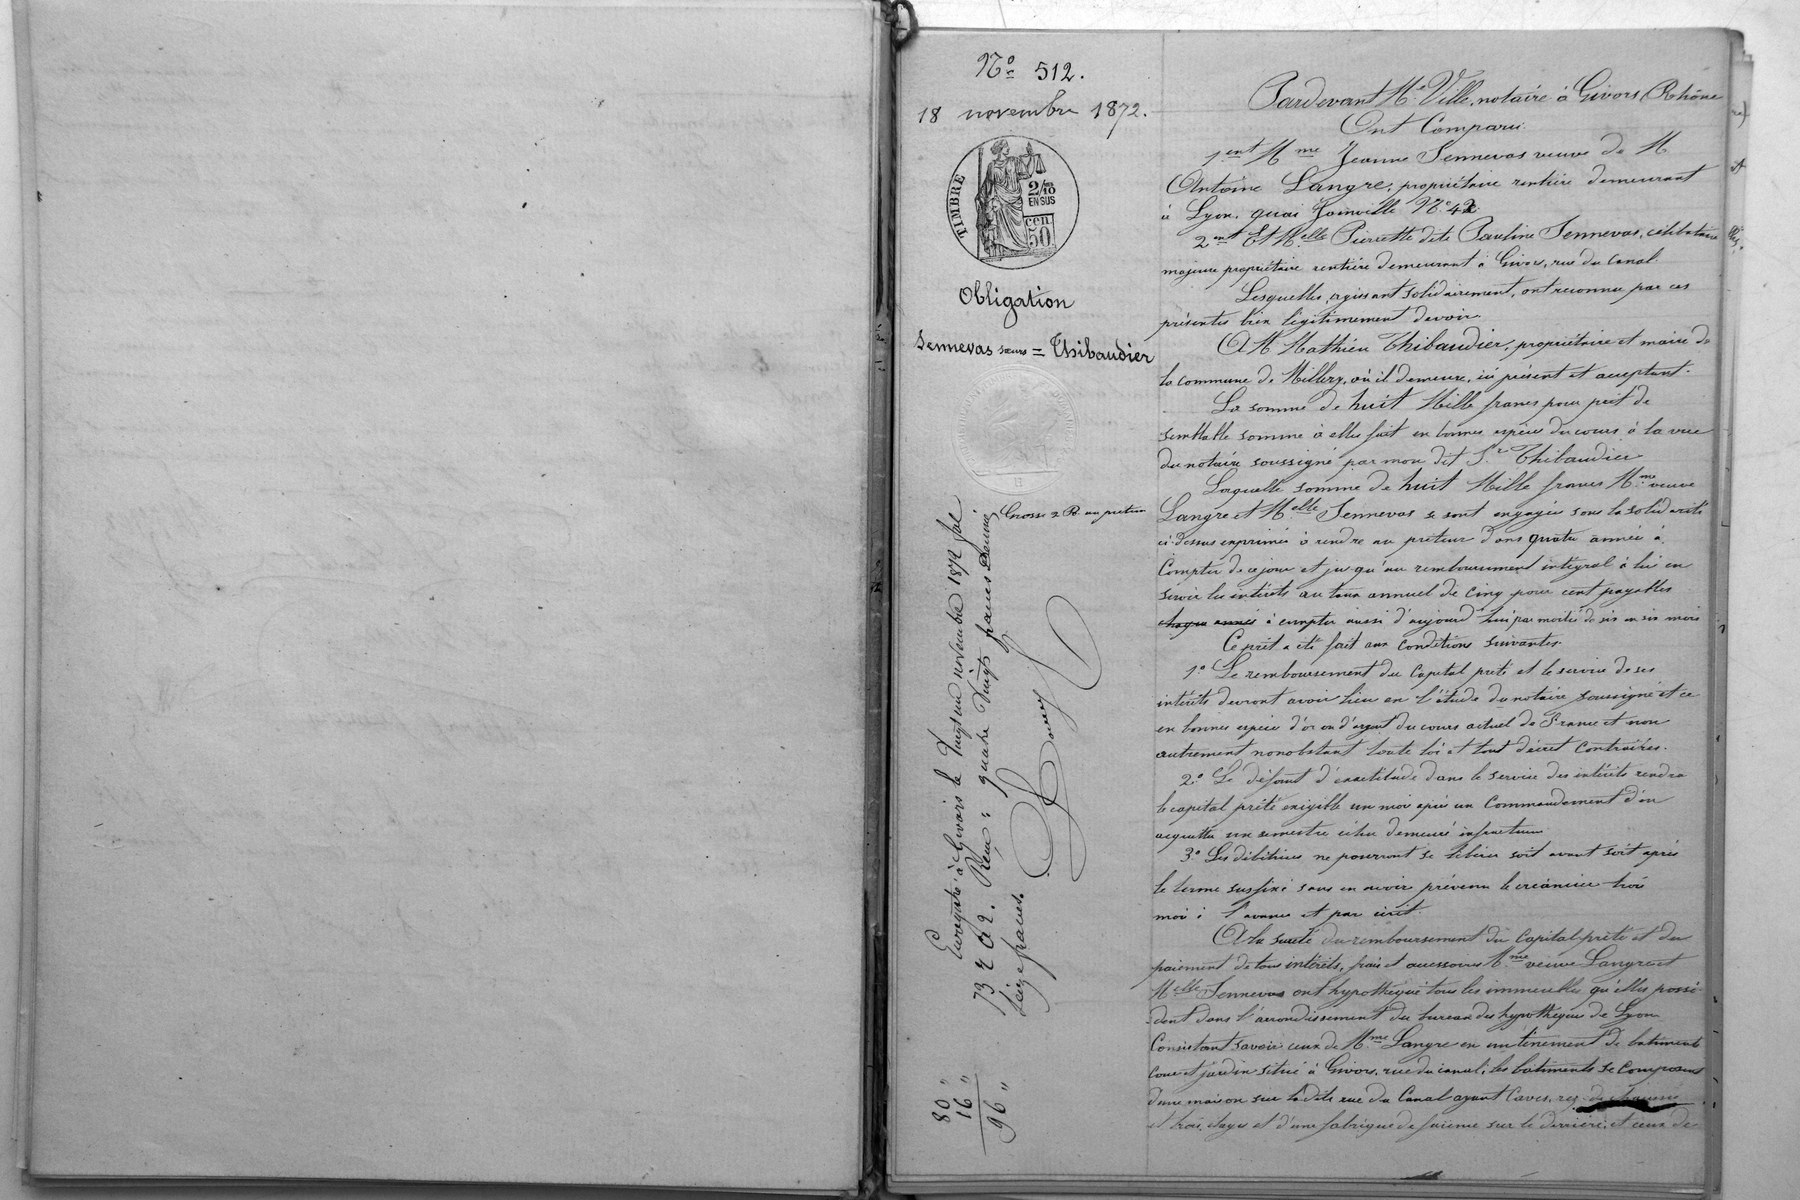 No 512.
18 novembre 1872.
TIMBRE
2/10 EN SUS
50 cen
Obligation
Sennevas sœurs = Thibaudier
Grosse
Enregistré à Givors le vingt un novembre 1872 fol
73 R C 2. Reçu : quatre vingt francs Décime
seize francs.
80 "
16 "
96 "
Pardevant Me Ville, notaire à Givors (Rhône
Ont Comparu
1ent Mme Jeanne Sennevas veuve de M.
Antoine Langre, propriétaire rentière demeurant
à Lyon, quai Joinville No 42
2ent Et Melle Pierrette dite Pauline Sennevas, célibataire
majeure propriétaire rentière demeurant à Givors, rue du Canal.
Lesquelles, agissant solidairement, ont reconnu par ces
présentes bien légitimement devoir
A M Mathieu Thibaudier, propriétaire et maire de
la commune de Millery, où il demeure, ici présent et acceptant.
La somme de huit Mille francs pour prêt de
semblable somme à elles fait en bonnes espèces du cours à la vue
du notaire soussigné par mon dit Sr Thibaudier
Laquelle somme de huit Mille francs Mme veuve
Langre et Melle Sennevas se sont engagées sous la solidarité
ci-dessus exprimée à rendre au prêteur dans quatre années à
Compter de ce jour et jusqu'au remboursement intégral à lui en
servir les intérêts au taux annuel de cinq pour cent payables
chaque année à compter aussi d'aujourd'hui par moitié de six en six mois
Ce prêt a été fait aux Conditions suivantes.
1o Le remboursement du Capital prêté et le service de ses
intérêts devront avoir lieu en l'étude du notaire soussigné et ce
en bonnes espèces d'or ou d'argent du cours actuel de France et non
autrement nonobstant toute loi et tout décret Contraires.
2o Le défaut d'exactitude dans le service des intérêts rendra
le capital prêté exigible un mois après un Commandement d'en
acquitter un semestre échu demeuré infructueux
3o Les débitrices ne pourront se libérer soit avant soit après
le terme susfixé sans en avoir prévenu le créancier trois
mois à l'avance et par écrit.
A la sureté du remboursement du Capital prêté et du
paiement de tous intérêts, frais et accessoires Mme veuve Langre et
Melle Sennevas ont hypothéqué tous les immeubles qu'elles possè-
dent dans l'arrondissement du bureau des hypothèques de Lyon
Consistant savoir ceux de Mme Langre en un tènement de batiments
cour et jardin situé à Givors, rue du canal, les bâtiments se Composent
d'une maison sur la dite rue du Canal ayant Caves, rez-de-chaussée
et trois étages et d'une fabrique de faïence sur le derrière, et ceux de